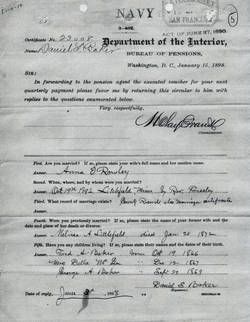 NAVY
SAN FRANCISCO
5
3-402.
ACT OF JUNE 27, 1890.
Certificate No. 22008
Daniel S Baker
Department of the Interior,
BUREAU OF PENSIONS,
Washington, D. C., January 15, 1898.
SIR:
In forwarding to the pension agent the executed voucher for your next
quarterly payment please favor me by returning this circular to him with
replies to the questions enumerated below.
Very respectfully,
Commissioner.
First. Are you married? If so, please state your wife's full name and her maiden name.
Anna E Rowley
Second. When, where, and by whom were you married?
Oct 1892 Litchfield Minn by Rev
Third. What record of marriage exists?
Family Record also marriage certificate
Fourth. Were you previously married? If so, please state the name of your former wife and the
date and place of her death or divorce.
Melissa A Littlefield died Jan 20 1892
Fifth. Have you any children living? If so, please state their names and the dates of their birth.
Fred A Baker born Oct 19 1866
Mrs Belle Dec 12 1867
George A Baker Sept 20 1869
Daniel S Baker
Date of reply, June 1898